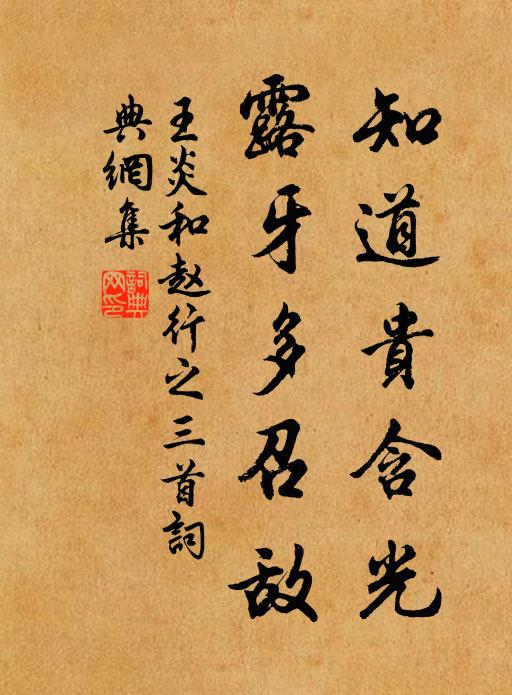 知道貴含光
露牙多召敌
王炎和赵行之三首詞
典網集
詞典网印